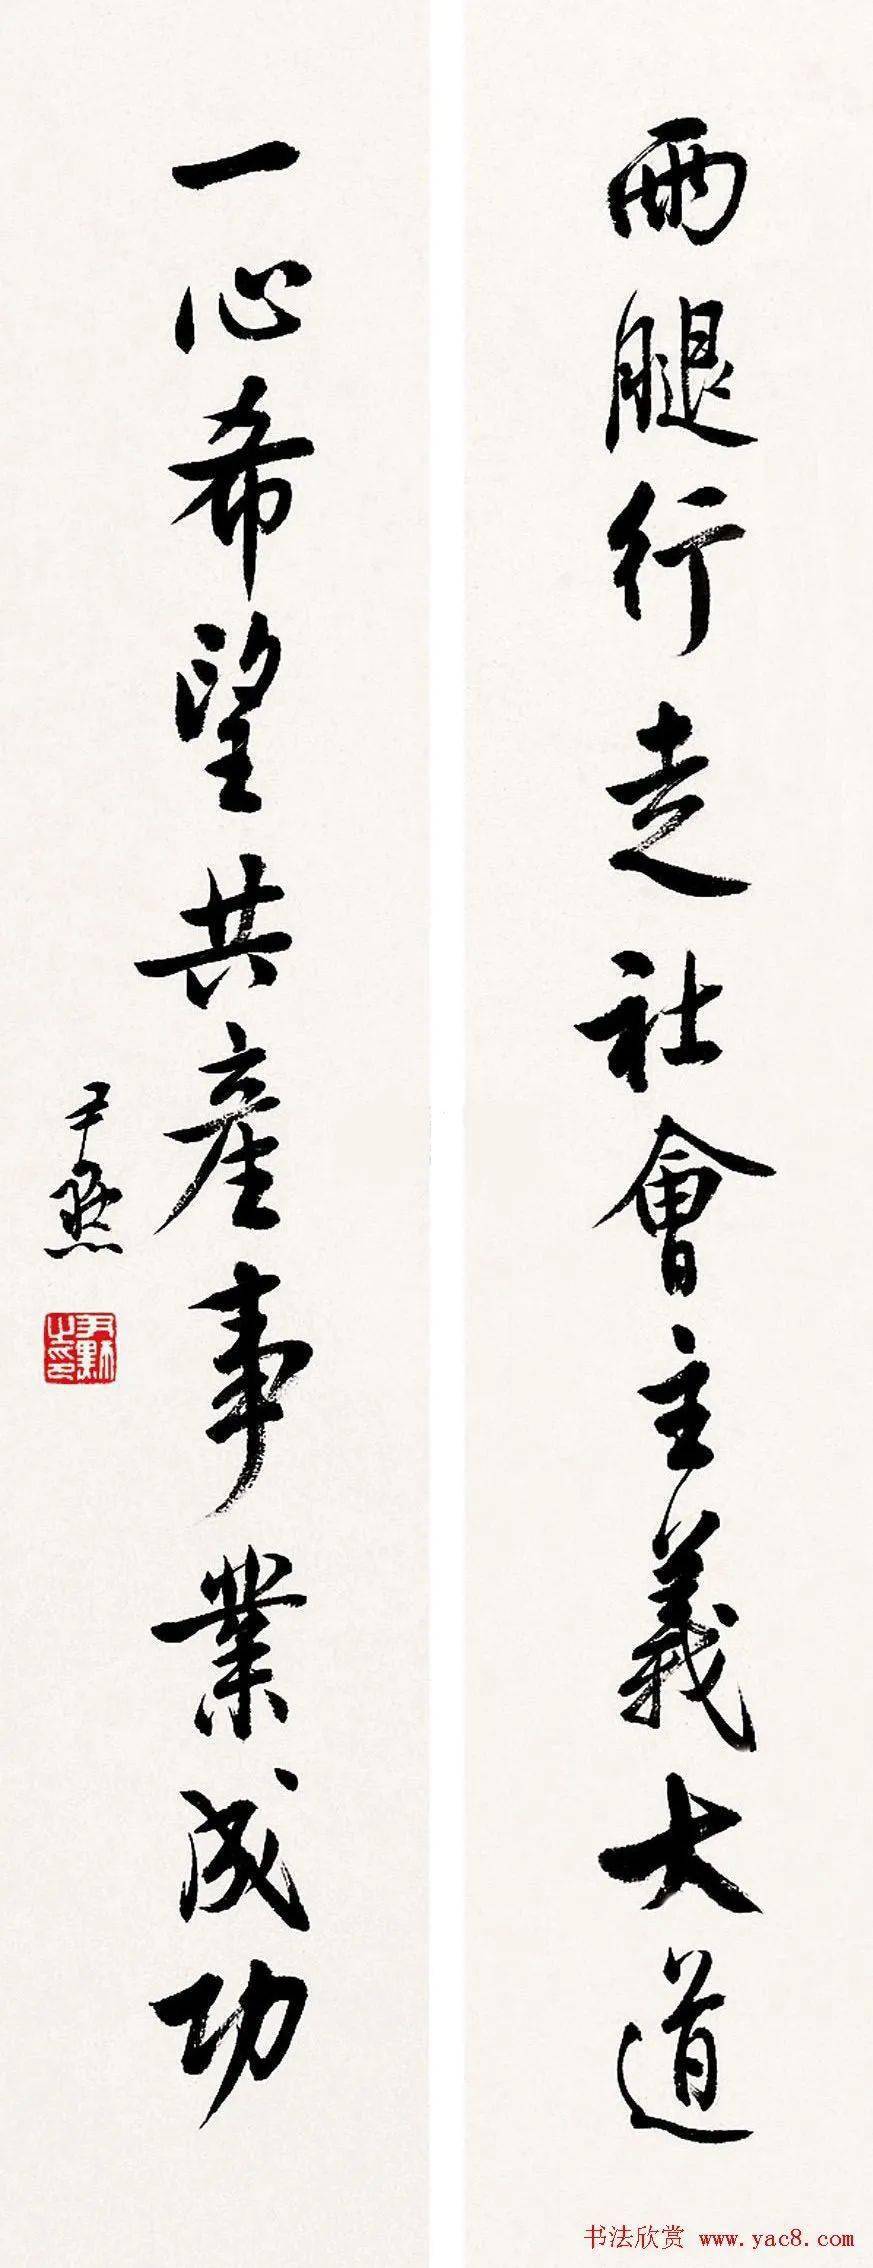 兩腿行走社會主義大道
一心希望共產事業成功
尹默
尹默之印
书法欣赏 www.yac8.com